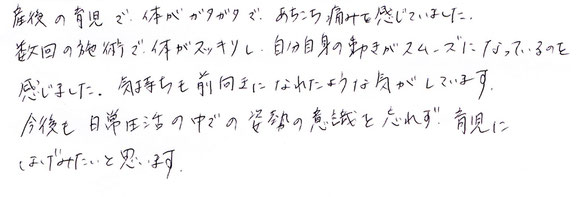 産後の育児で、体がガタガタで、あちこち痛みを感じていました。
数回の施術で、体がスッキリし、自分自身の動きがスムーズになっているのを
感じました。気持ちも前向きになれたような気がしています。
今後も日常生活の中での姿勢の意識を忘れず、育児に
はげみたいと思います。